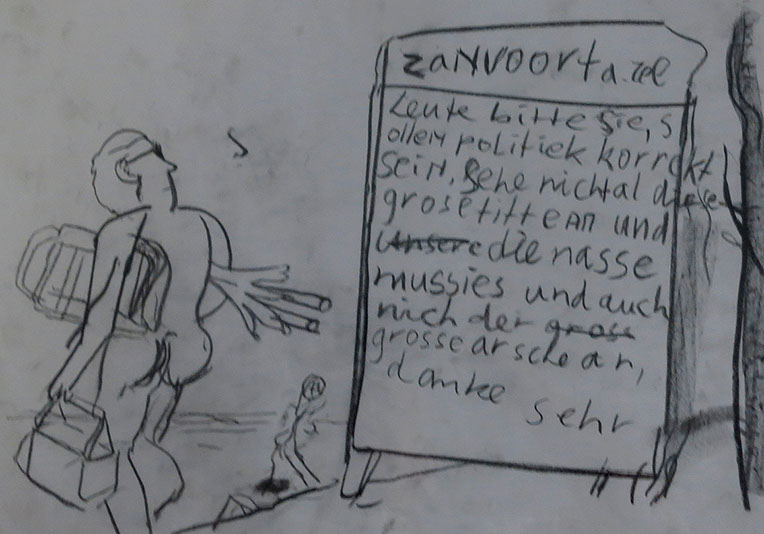 zaNVOORT a.zee
Leute bitte Sie, s
ollem politiek korrekt
Sein, Sehe nicht al diese
grose titteAn und
unsere die nasse
mussies und auch
nich der gross
grosse arsche an,
danke sehr